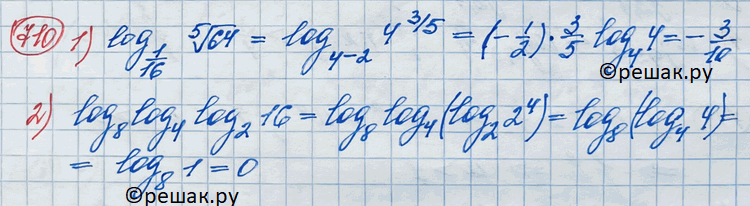 710 1) log_{1/16} ⁵√64 = log_{4-2} 4^{3/5} = (-1/2)·3/5 log_4 4 = -3/10
©решак.ру
2) log_8 log_4 log_2 16 = log_8 log_4 (log_2 2^4) = log_8 (log_4 4) =
= log_8 1 = 0
©решак.ру